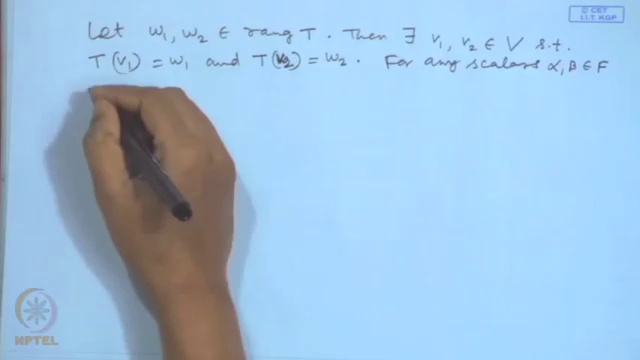 © CET
I.I.T. KGP
Let w₁, w₂ ∈ rang T. Then ∃ v₁, v₂ ∈ V s.t.
T(v₁) = w₁ and T(v₂) = w₂. For any scalars α, β ∈ F
NPTEL